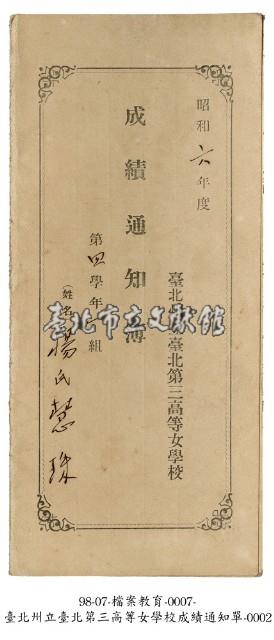 昭和六年度
成績通知簿
臺北
臺北第三高等女學校
第四學年
組
(姓名
楊氏慧珠
臺北市立文獻館
98-07-檔案教育-0007-
臺北州立臺北第三高等女學校成績通知單-0002